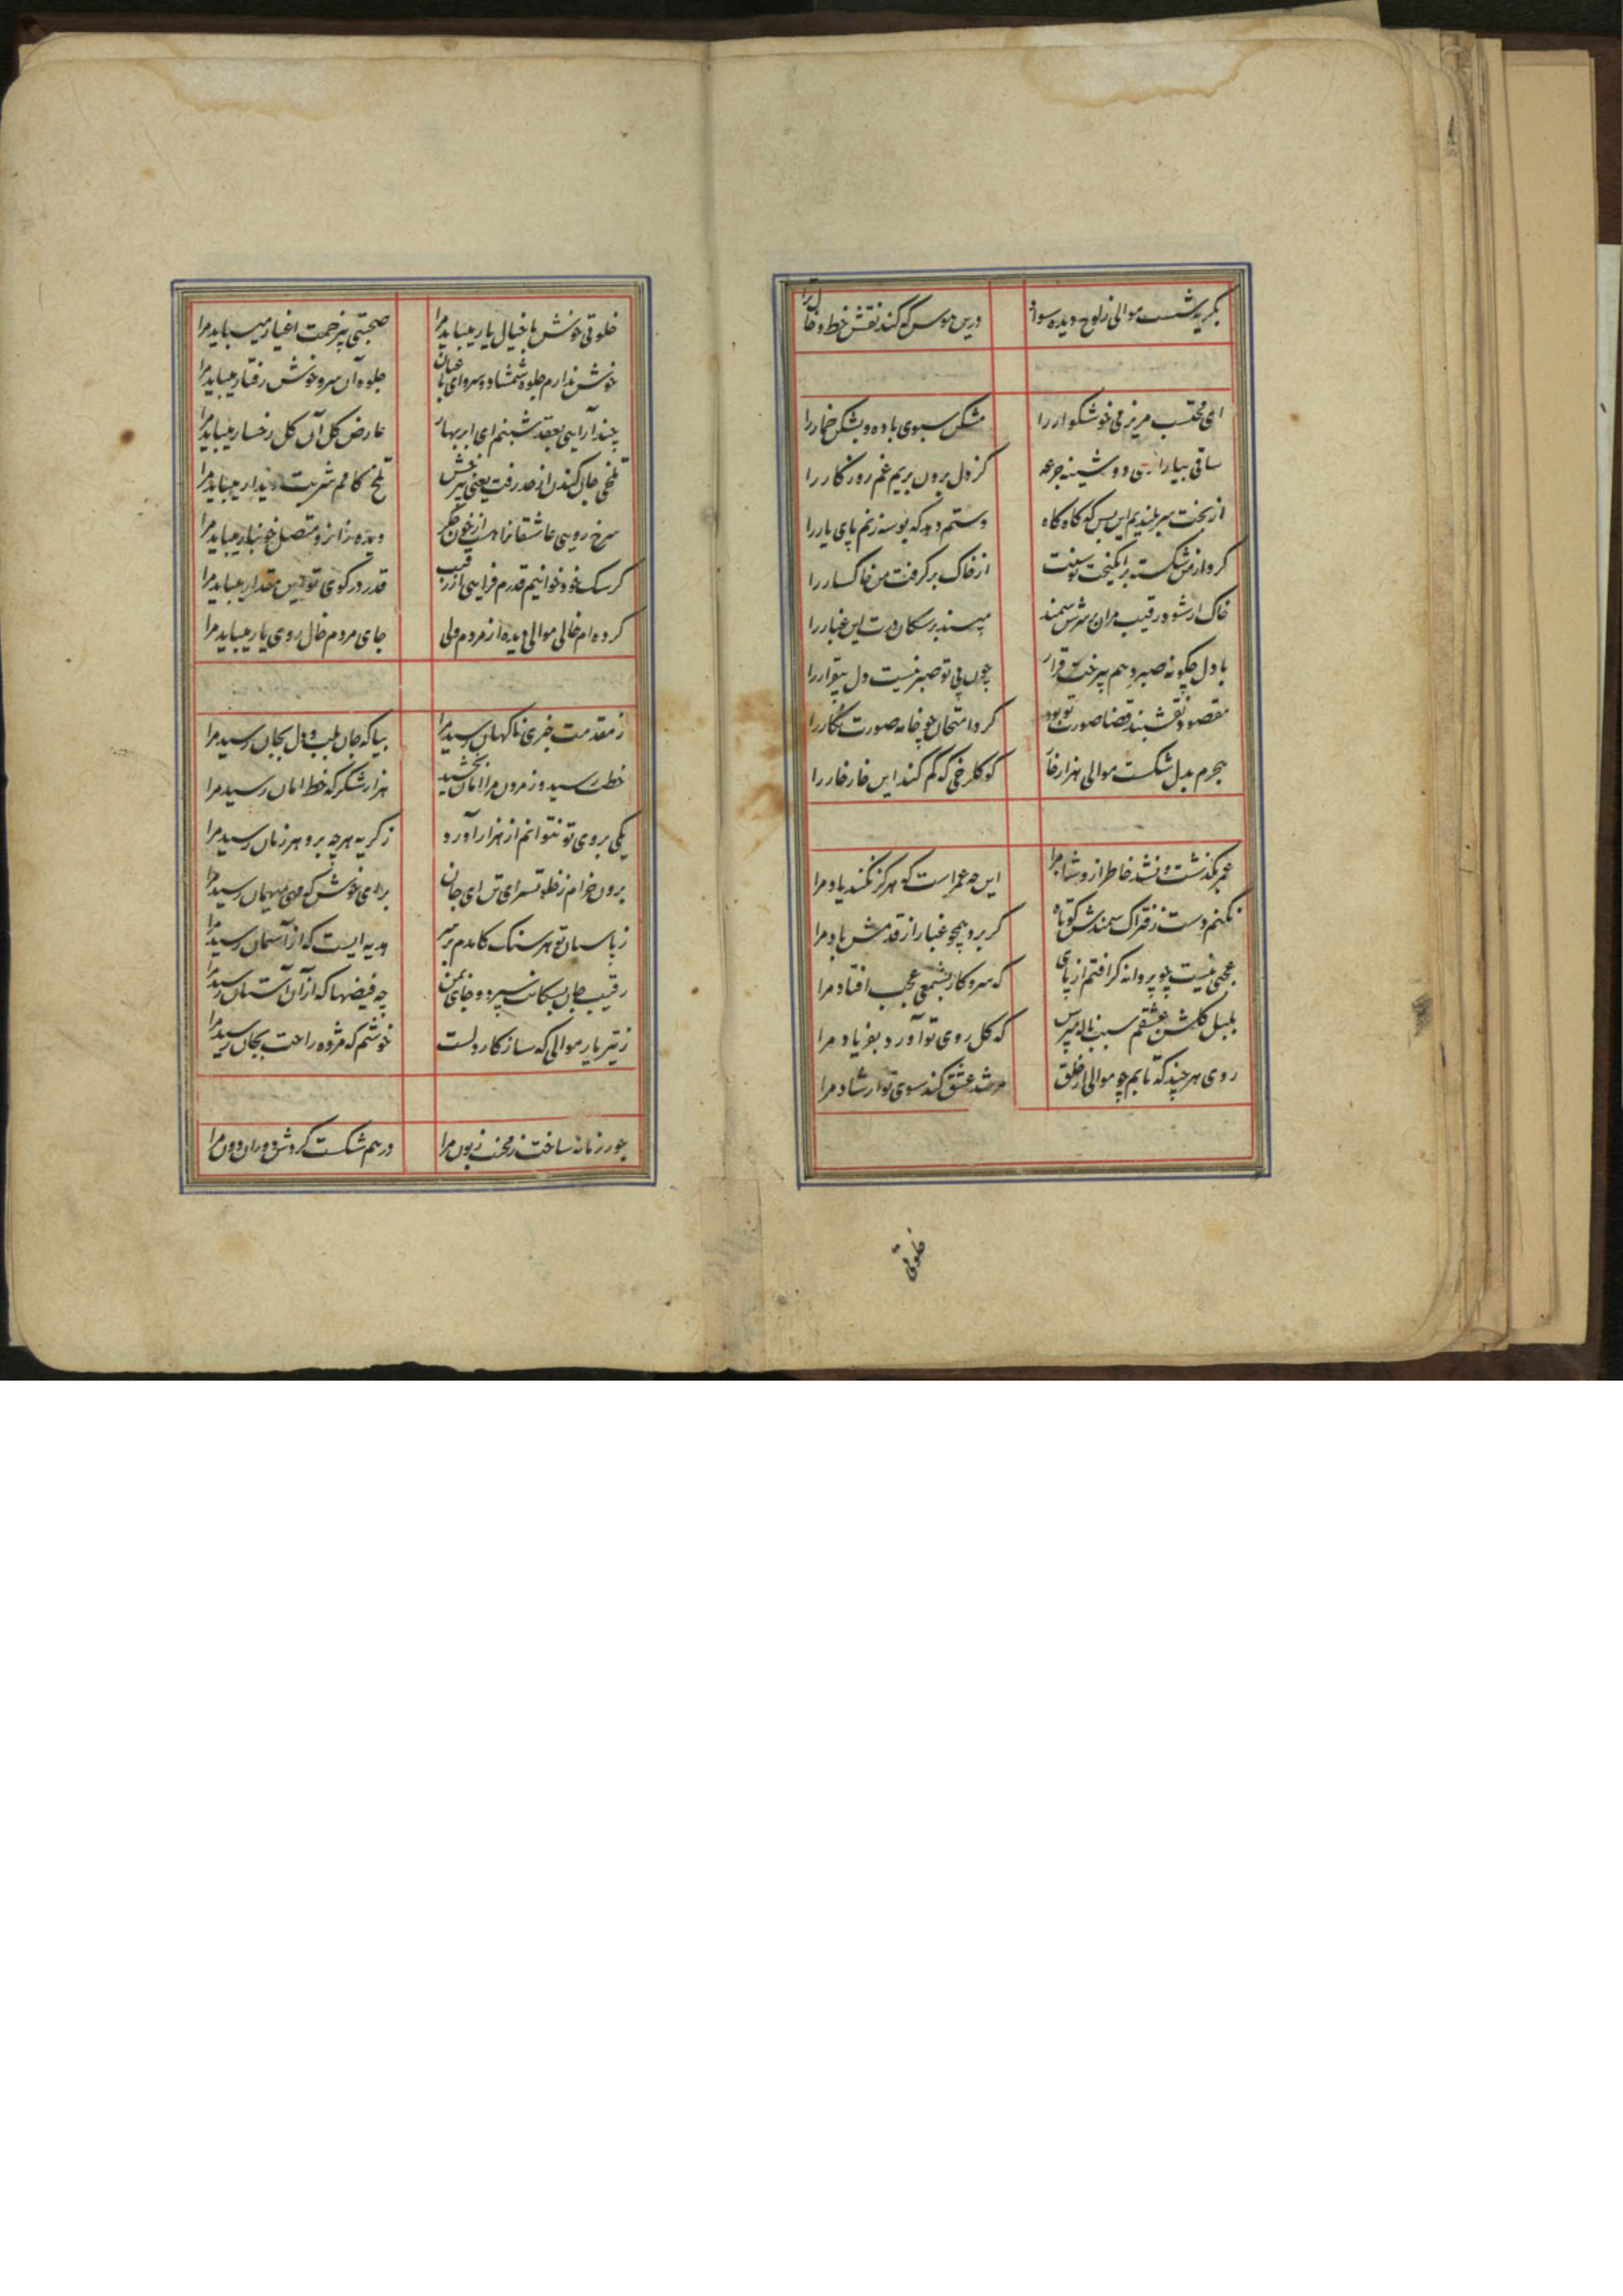 بگریه شست موالی ز لوح دیده سواد درین هوس که کند نقش خط و خال ترا
ای محتسب مریز می خوشگوار را مشکن سبوی باده و بشکن خمار را
ساقی بیار از می دوشینه جرعه کز دل برون بریم غم روزگار را
از بخت سربلندیم این بس که گاه گاه دستم دهد که بوسه زنم پای یار را
گرد از من شکسته برانگیخت توسنت از خاک برگرفت من خاکسار را
خاک ار شود رقیب مران بر سرش سمند مپسند بر سکان درت این غبار را
با دل چگونه صبر دهم بی رخت قرار چون بی تو صبر نیست دل بیقرار را
مقصود نقشبند قضا صورت تو بود کرد امتحان چو خامه صورت نگار را
هجرم بدل شکست موالی هزار خار کو گلرخی که کم کند این خار خار را
عمر بگذشت و نشد خاطر ازو شاد مرا این چه عمر است که هرگز نکند یاد مرا
نکنم دست ز فتراک سمندش کوتاه گر برد همچو غبار از قدمش باد مرا
عجبی نیست چو پروانه گر افتم از پای که سر و کار بشمعی عجب افتاد مرا
بلبل گلشن عشقم سبب ناله مپرس که گل روی تو آورد بفریاد مرا
روی هر چند که تابم چو موالی از خلق مرشد عشق کند سوی تو ارشاد مرا
خلوتی
خلوتی خوش با خیال یار میباید مرا صحبتی بی زحمت اغیار میباید مرا
خوش ندارم جلوه شمشاد و سرو ای باغبان جلوه آن سرو خوش رفتار میباید مرا
چند آرایی بعقد شبنم ای ابر بهار عارض گل آن گل رخسار میباید مرا
تلخی جان کندن از حد رفت یعنی بی لبش تلخ کامم شربت دیدار میباید مرا
سرخ رویی عاشقانرا هست از خون جگر دیده زانرو متصل خونبار میباید مرا
گر سک خود خوانیم قدرم فزایی بر رقیب قدر در کوی تو این مقدار میباید مرا
کرده ام خالی موالی دیده از مردم ولی جای مردم خال روی یار میباید مرا
ز مقدمت خبری ناگهان رسید مرا بیا که جان بلب و دل بجان رسید مرا
خطت رسید و ز مردن مرا امان بخشید هزار شکر که خط امان رسید مرا
یکی بروی تو نتوانم از هزار آورد ز گریه هر چه برو هر زمان رسید مرا
برون خرام ز خلوتسرای تن ای جان برای خوش که مهی میهمان رسید مرا
ز پاسبان تو هر سنگ کامدم بر سر هدیه ایست که از آسمان رسید مرا
رقیب جان بسکانت سپرد و جای بمن چه فیضها که از آن آستان رسید مرا
ز تیر یار موالی که ساز کار دلست خوشم که مژده راحت بجان رسید مرا
جور زمانه ساخت ز محنت زبون مرا درهم شکست گردش دوران دون مرا